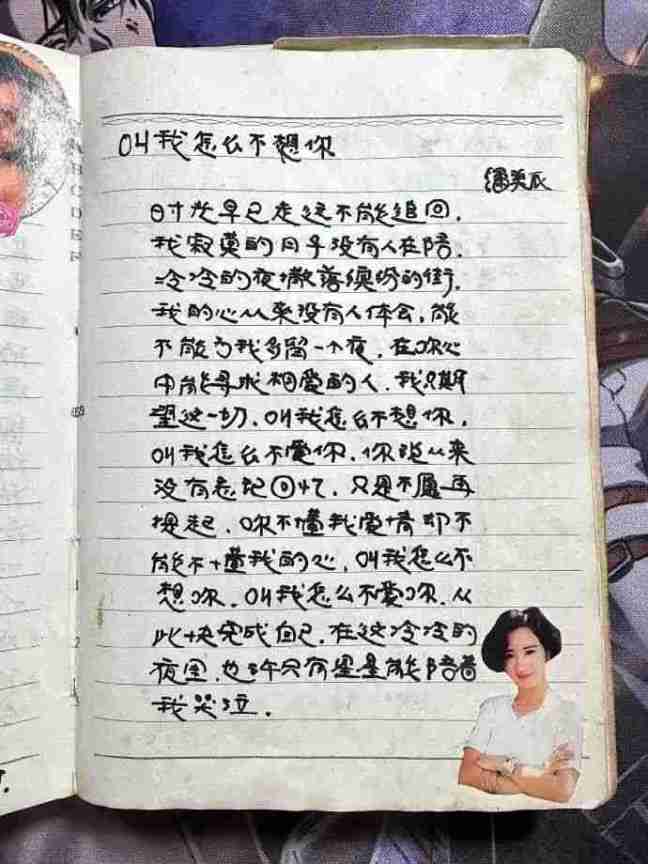 叫我怎么不想你
潘美辰
时光早已走远不能追回.
我寂寞的日子没有人在陪.
冷冷的夜撒落缤纷的街.
我的心从来没有人体会,能
不能为我多留一个夜,在你心
中能寻求相爱的人.我只期
望这一切.叫我怎么不想你,
叫我怎么不爱你.你说从来
没有忘记回忆.只是不愿再
提起.你不懂我爱情却不
能不懂我的心.叫我怎么不
想你.叫我怎么不爱你.从
此快完成自己.在这冷冷的
夜里.也许只有星星能陪着
我哭泣.